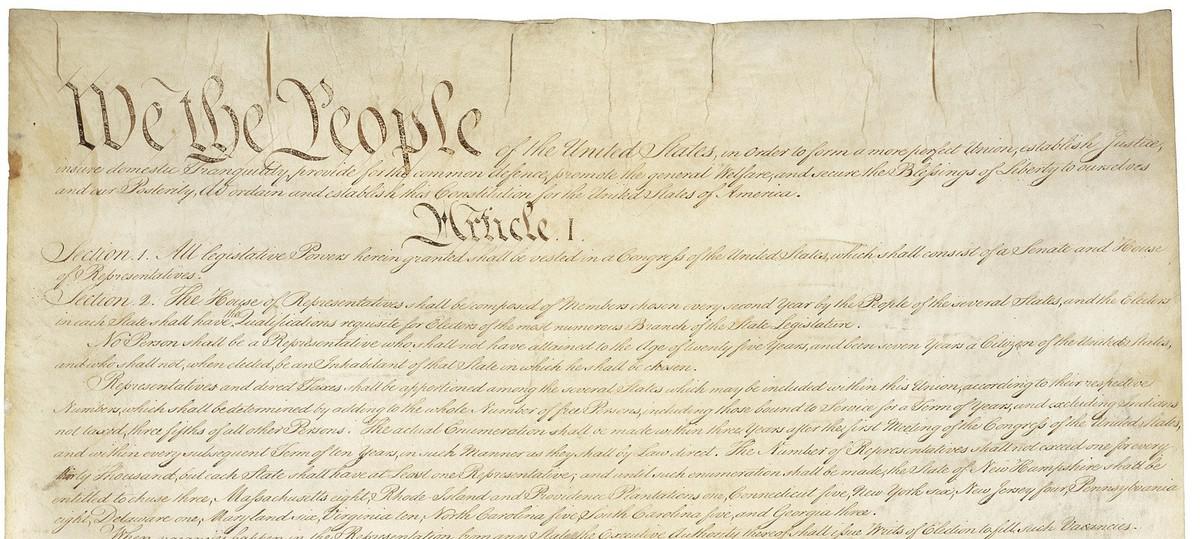 We the People of the United States, in Order to form a more perfect Union, establish Justice,
insure domestic Tranquility, provide for the common defence, promote the general Welfare, and secure the Blessings of Liberty to ourselves
and our Posterity, do ordain and establish this Constitution for the United States of America.
Article. I.
Section. 1. All legislative Powers herein granted shall be vested in a Congress of the United States, which shall consist of a Senate and House
of Representatives.
Section. 2. The House of Representatives shall be composed of Members chosen every second Year by the People of the several States, and the Electors
in each State shall have the Qualifications requisite for Electors of the most numerous Branch of the State Legislature.
No Person shall be a Representative who shall not have attained to the Age of twenty five Years, and been seven Years a Citizen of the United States,
and who shall not, when elected, be an Inhabitant of that State in which he shall be chosen.
Representatives and direct Taxes shall be apportioned among the several States which may be included within this Union, according to their respective
Numbers, which shall be determined by adding to the whole Number of free Persons, including those bound to Service for a Term of Years, and excluding Indians
not taxed, three fifths of all other Persons. The actual Enumeration shall be made within three Years after the first Meeting of the Congress of the United States,
and within every subsequent Term of ten Years, in such Manner as they shall by Law direct. The Number of Representatives shall not exceed one for every
thirty Thousand, but each State shall have at Least one Representative; and until such enumeration shall be made, the State of New Hampshire shall be
entitled to chuse three, Massachusetts eight, Rhode Island and Providence Plantations one, Connecticut five, New York six, New Jersey four, Pennsylvania
eight, Delaware one, Maryland six, Virginia ten, North Carolina five, South Carolina five, and Georgia three.
When vacancies happen in the Representation from any State, the Executive Authority thereof shall issue Writs of Election to fill such Vacancies.